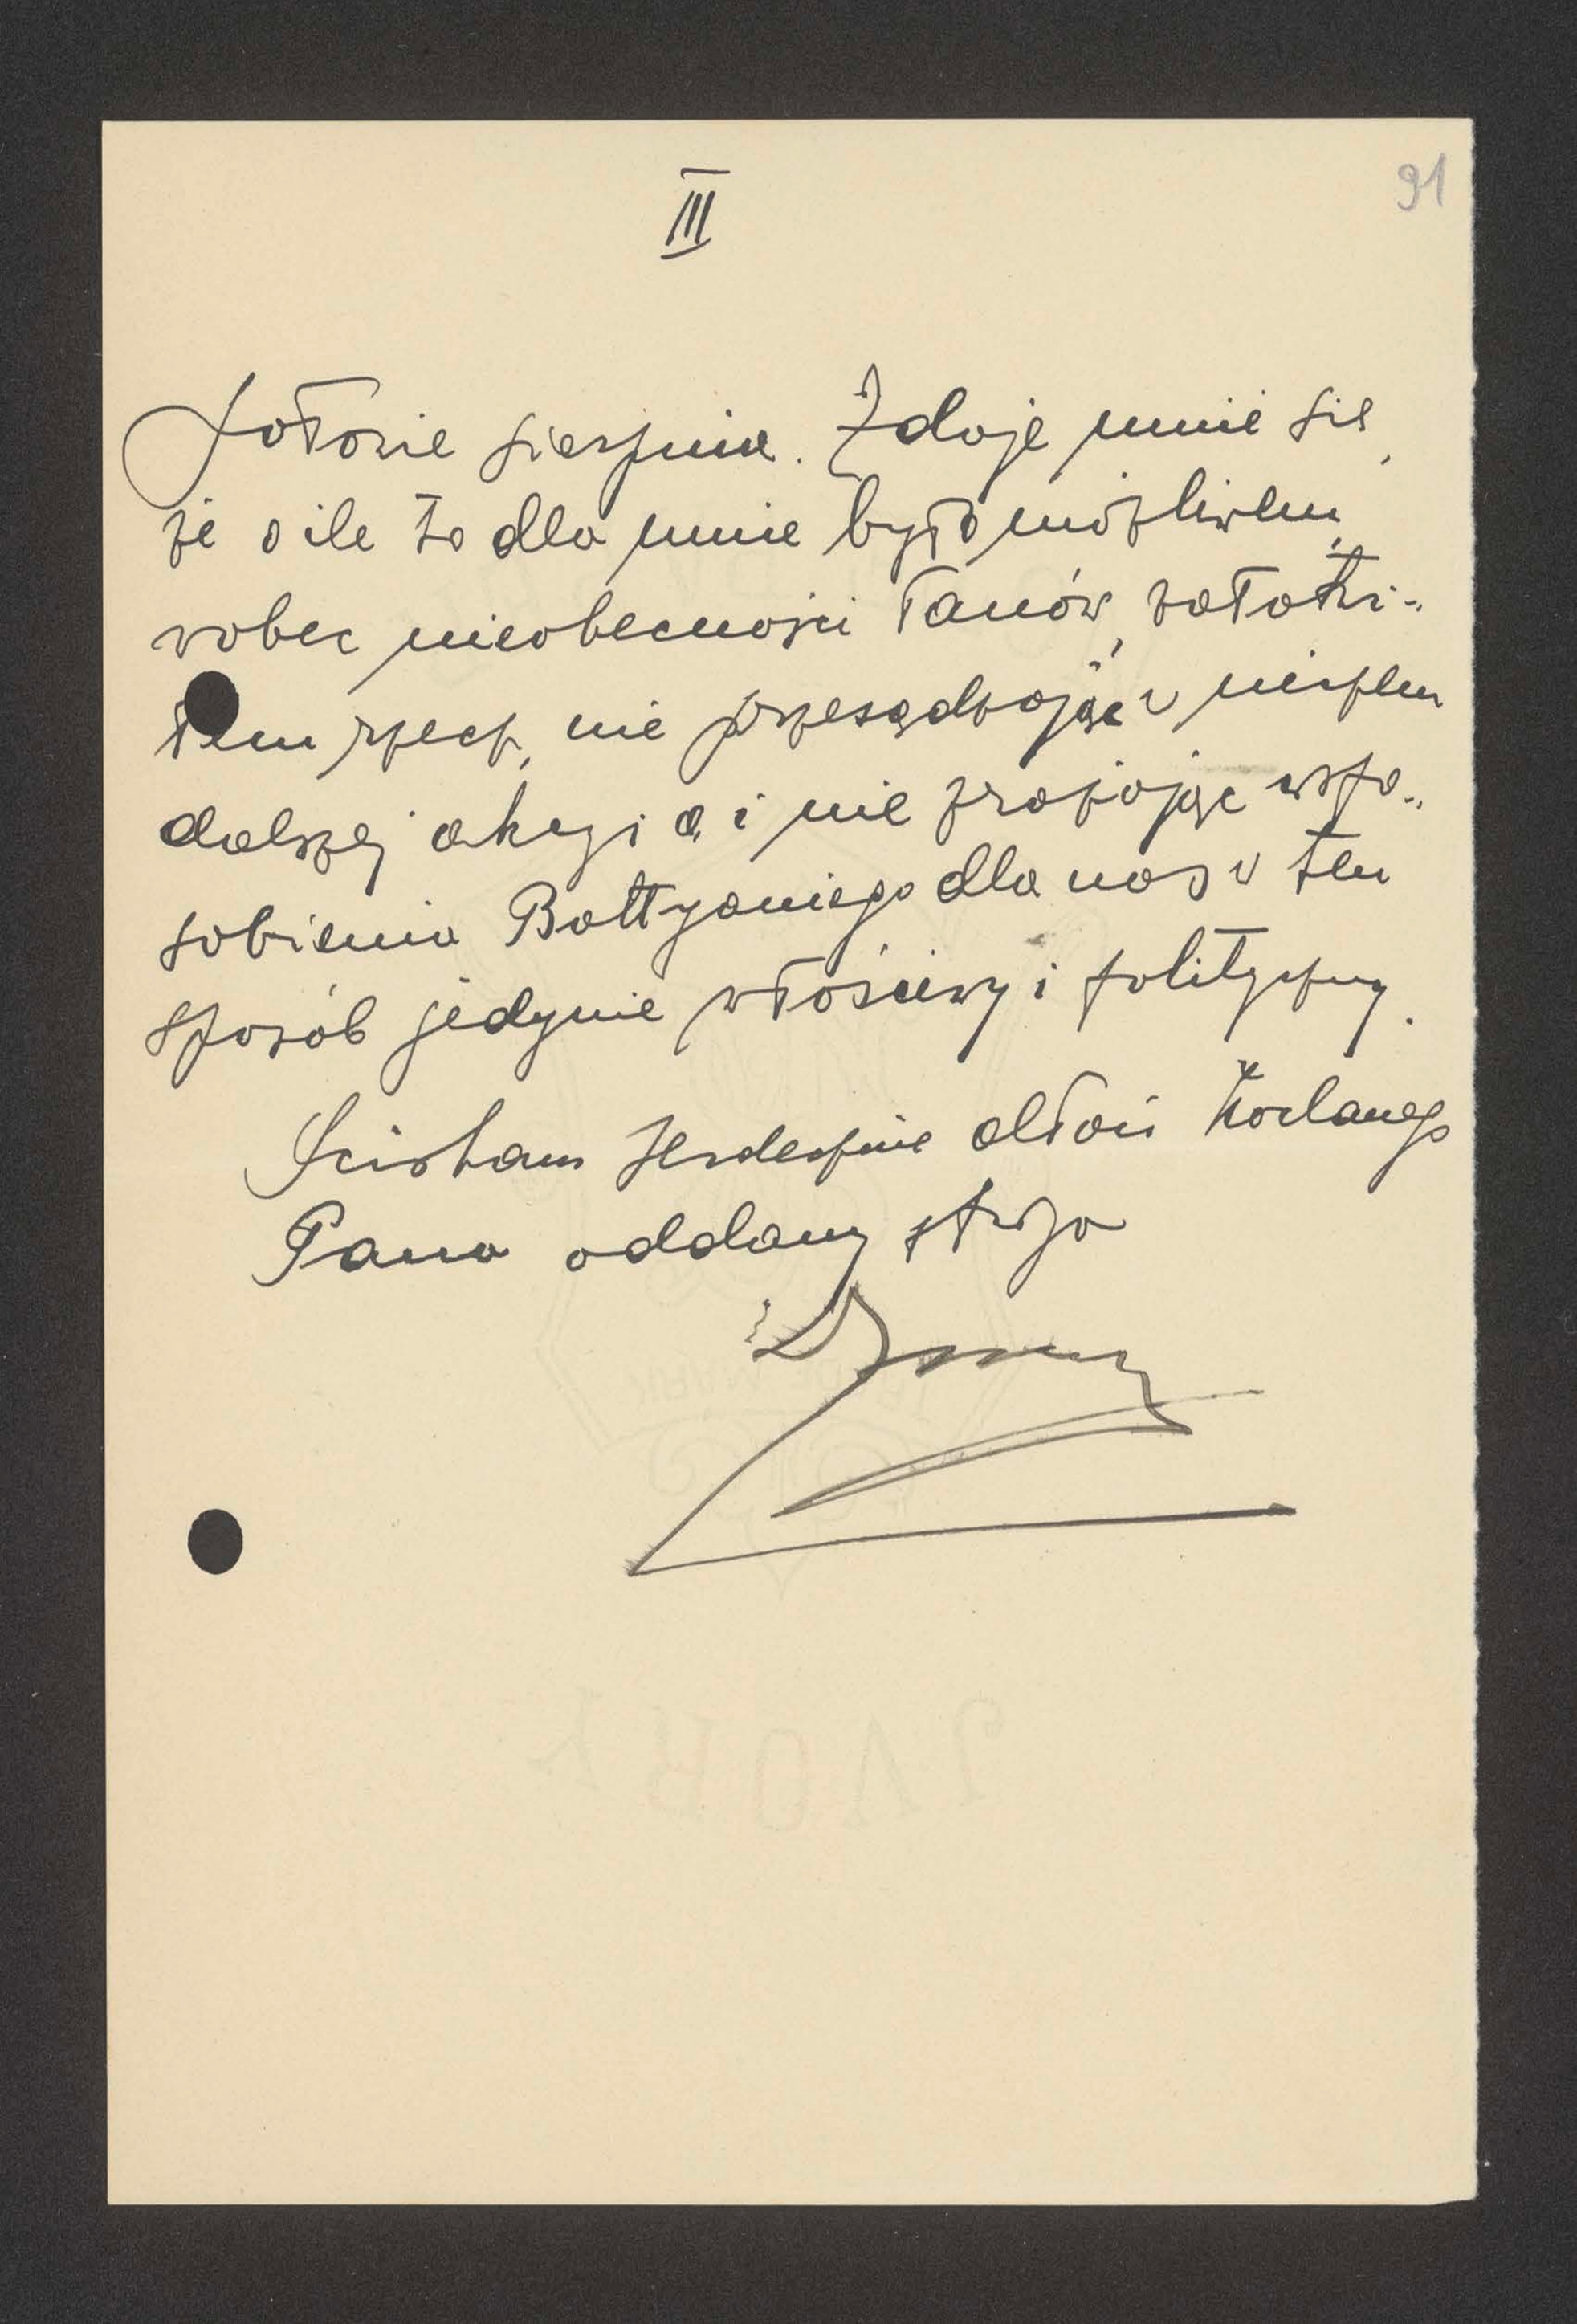 III
91
połowie sierpnia. Zdaje mnie się,
że o ile to dla mnie było możliwem,
wobec nieobecności Panów, załatwi-
łem rzecz, nie przesądzając w niczem
dalszej akcyi a i nie zrażając uspo-
sobienia Battyaniego dla nas w ten
sposób jedynie właściwy i polityczny.
Ściskam serdecznie dłoń Kochanego
Pana oddany sługa
IVORY